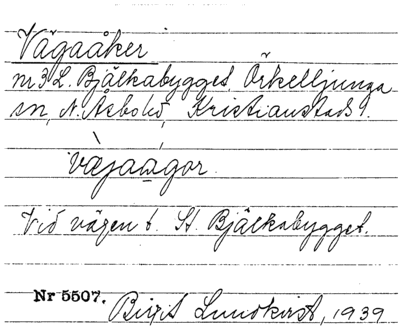 Vägaåker
nr 3 L. Bjälkabygget, Örkelljunga
sn, N. Åsbohd, Kristianstads l.
væjaagor
Vid vägen t. St. Bjälkabygget.
Nr 5507. Birgit Lundkvist, 1939